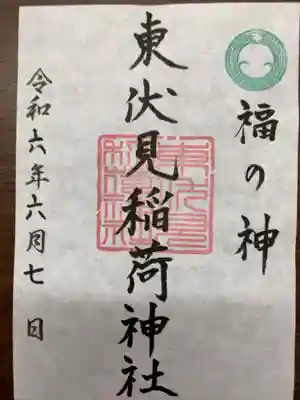 福の神
東伏見稲荷神社
令和六年六月七日